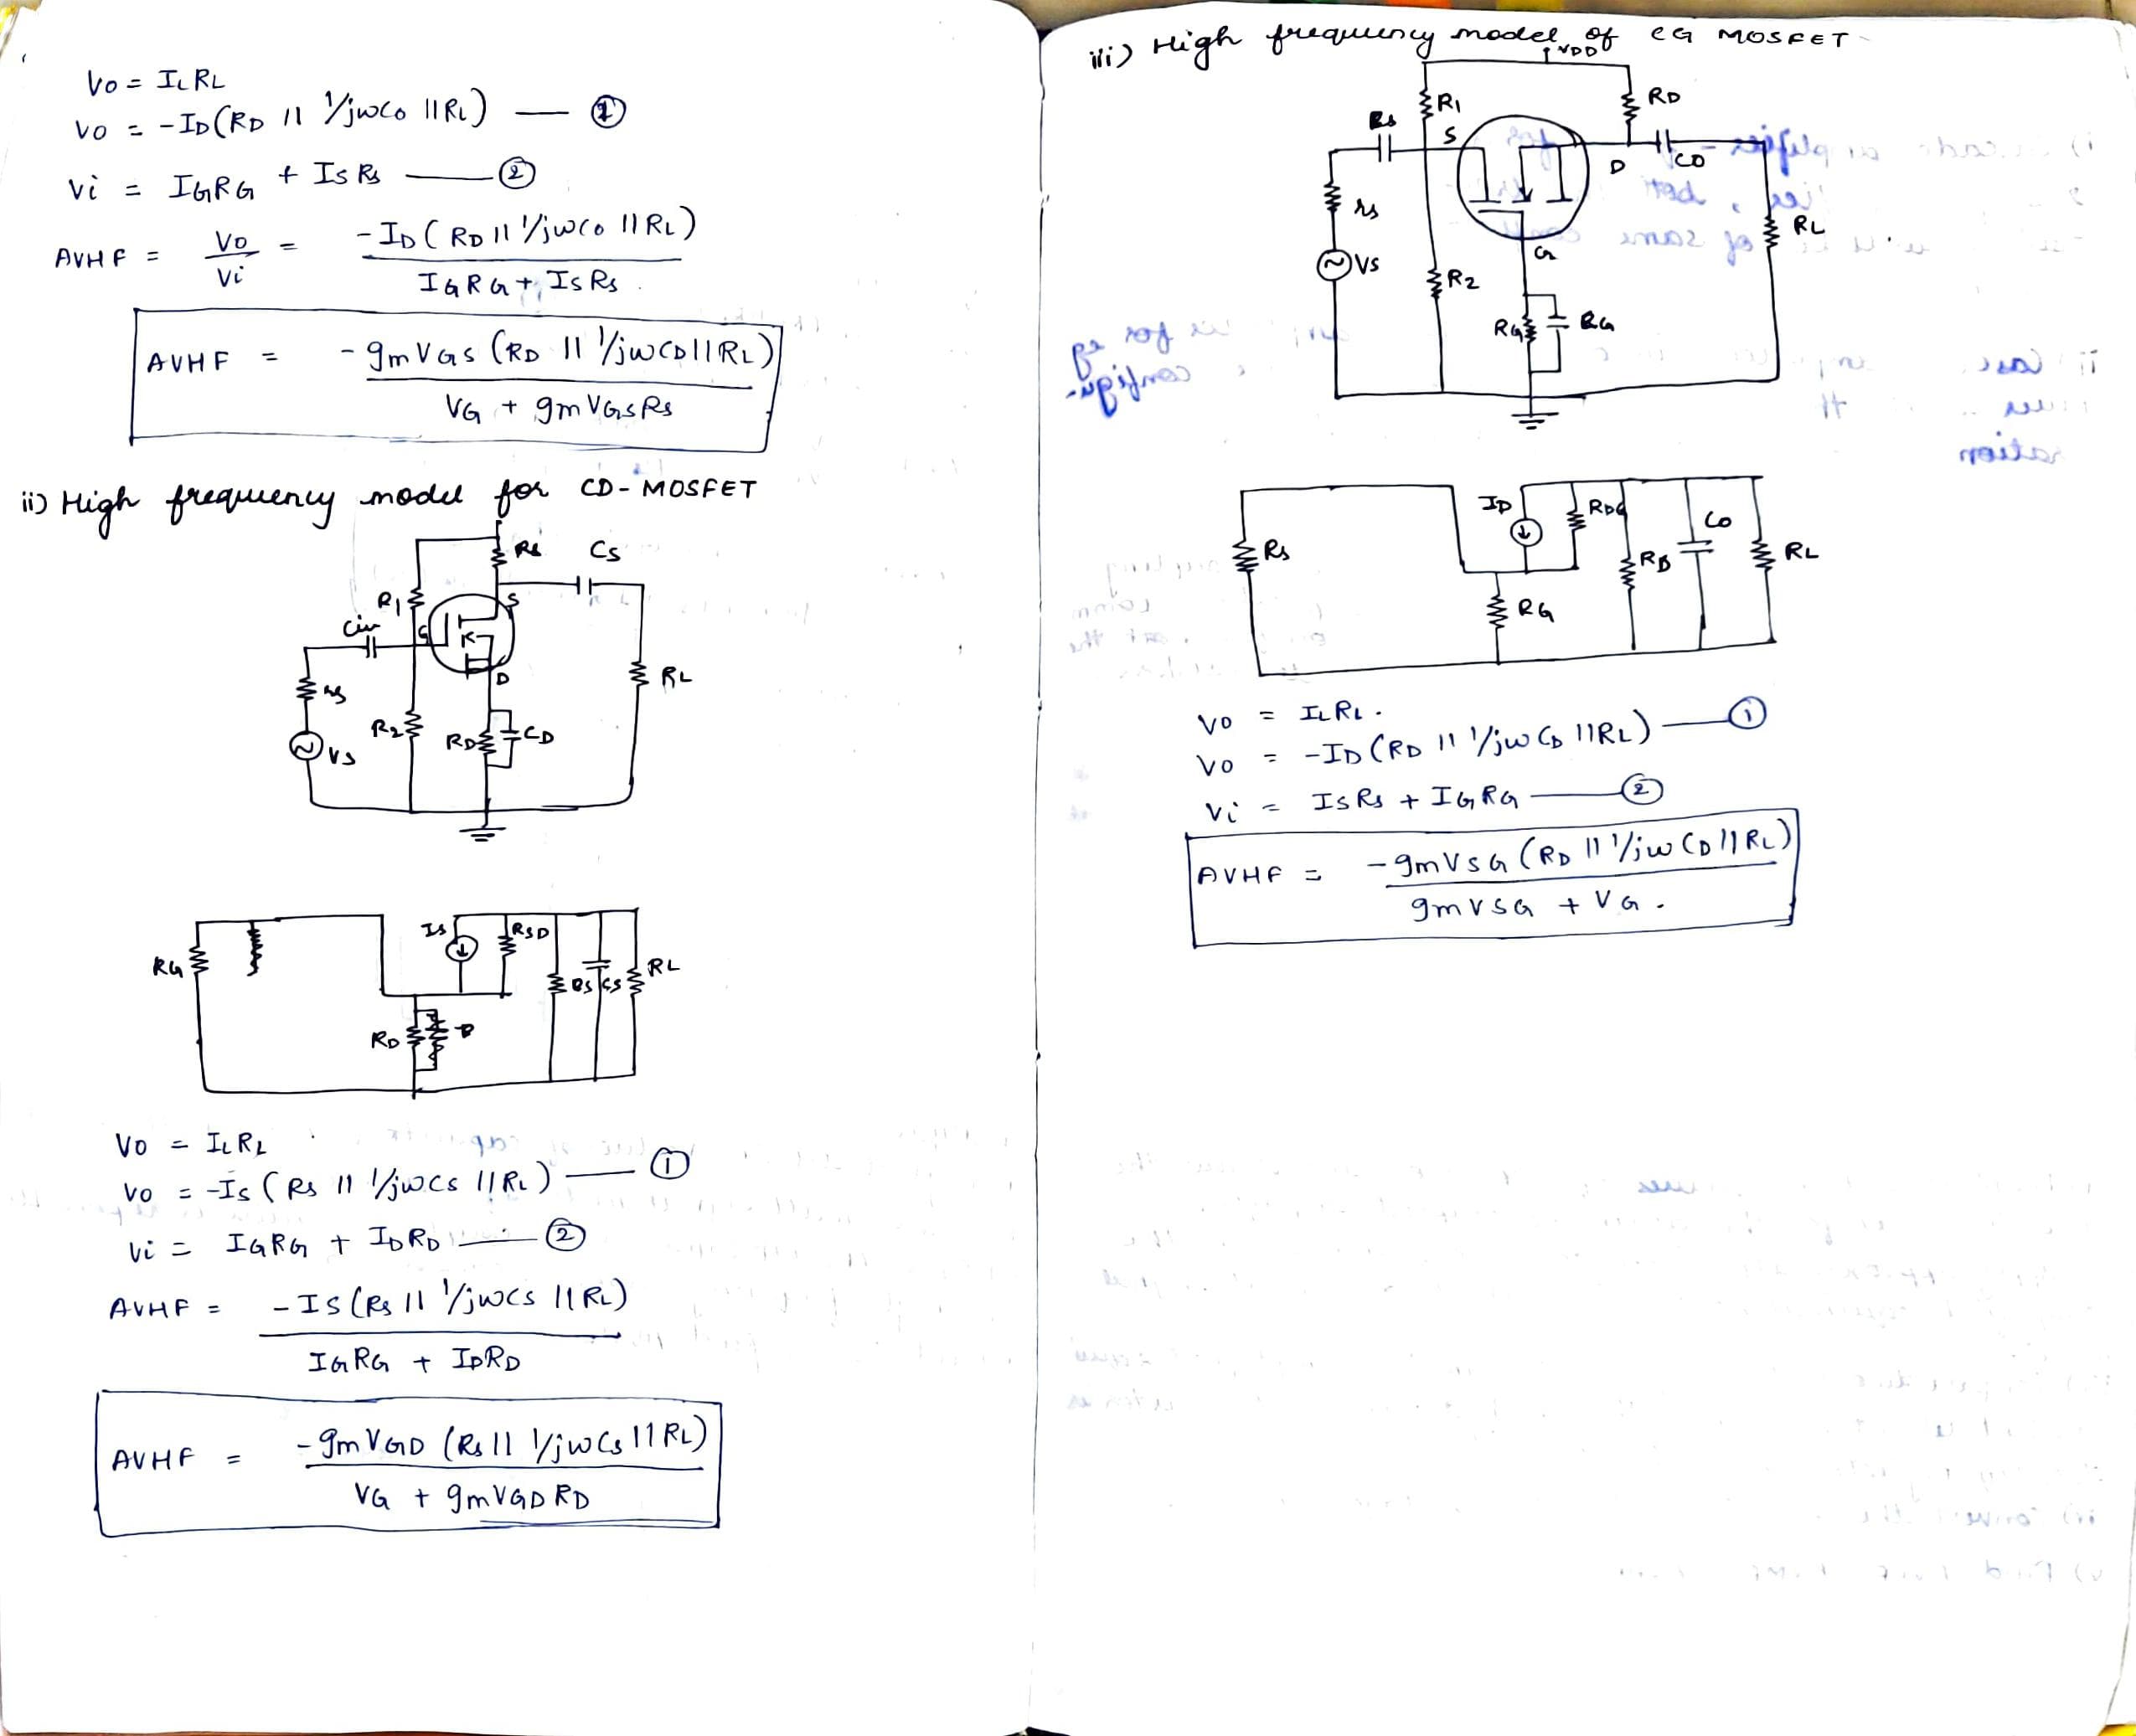 Vo = ILRL
Vo = -ID(RD || 1/jωCo ||RL) — ①
Vi = IGRG + ISRS — ②
AVHF = Vo/Vi = -ID(RD || 1/jωCo ||RL) / IGRG + ISRS
AVHF = -gmVGS (RD || 1/jωCD||RL) / VG + gmVGSRS
ii) High frequency model for CD-MOSFET
RS CS
R1
Cin
G S
D
rs
RL
R2
RD CD
VS
IS RSD
RG
RS CS RL
RD
Vo = ILRL
Vo = -IS (RS || 1/jωCS ||RL) — ①
Vi = IGRG + IDRD — ②
AVHF = -IS(RS || 1/jωCS ||RL) / IGRG + IDRD
AVHF = -gmVGD (RS|| 1/jωCS||RL) / VG + gmVGD RD
iii) High frequency model of CG MOSFET
VDD
R1 RD
S
D CO
rs
RL
G
VS
R2
RG
ID
CO
RS
RD RL
RG
Vo = ILRL.
Vo = -ID (RD || 1/jωCD ||RL) — ①
Vi = ISRS + IGRG — ②
AVHF = -gmVSG (RD || 1/jωCD||RL) / gmVSG + VG.